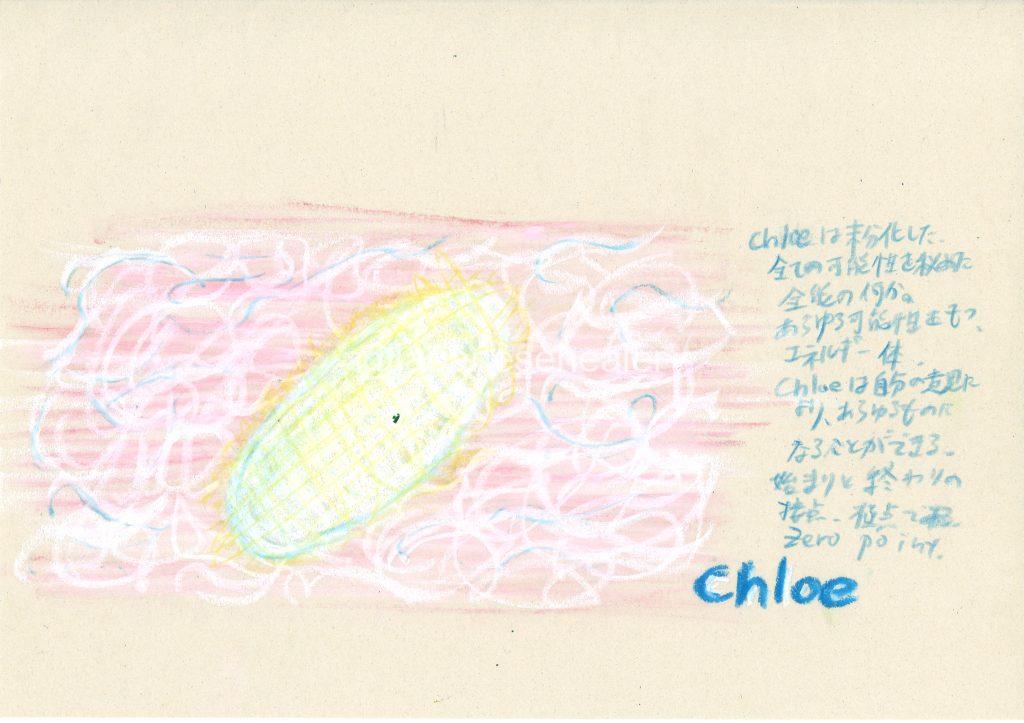 Chloeは未分化した、
全ての可能性を秘めた
全能の何か。
あらゆる可能性をもつ、
エネルギー体、
Chloeは自分の意思に
より、あらゆるものに
なることができる。
始まりと終わりの
接点、極点で
Zero point.
Chloe